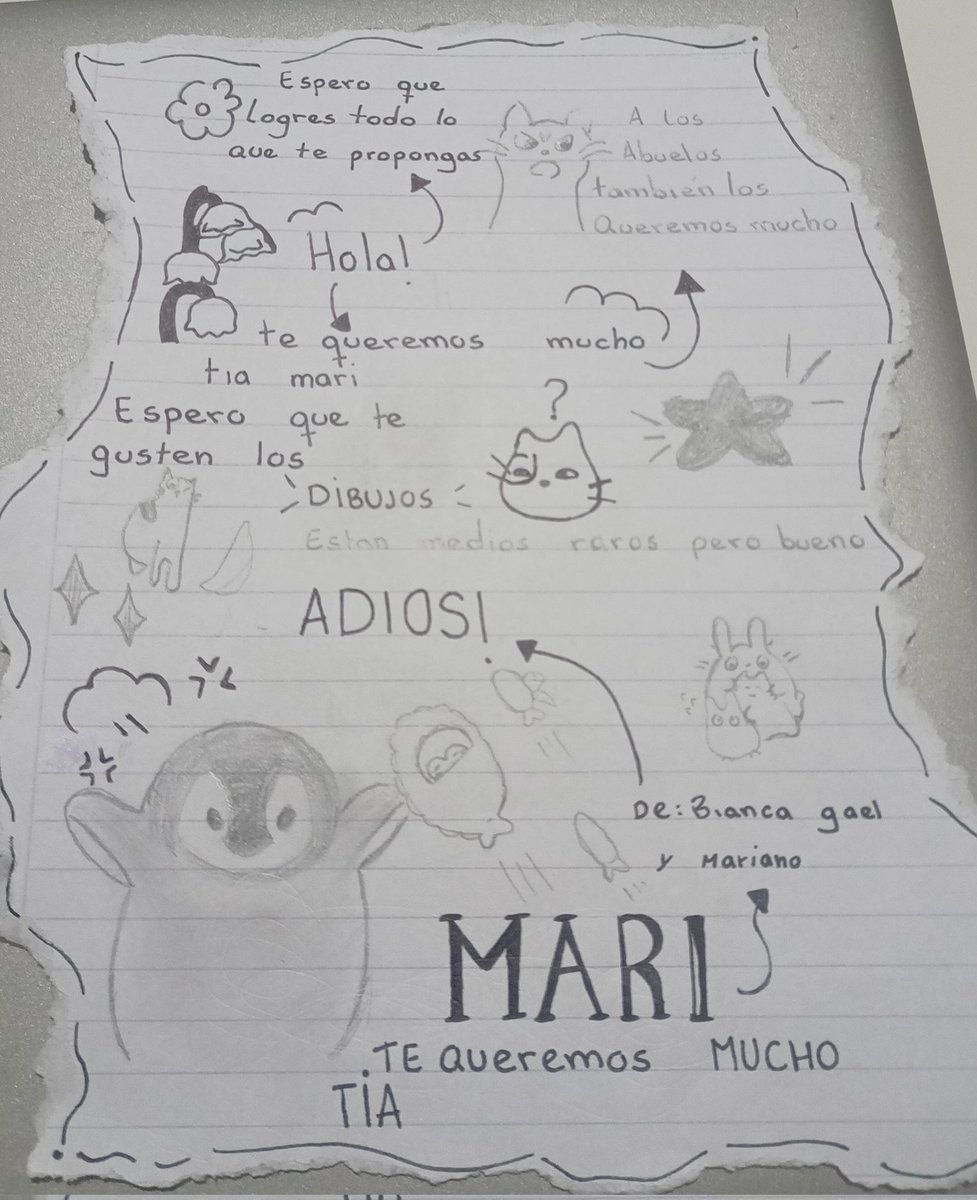 Espero que
logres todo lo
que te propongas
A los
Abuelos
también los
Queremos mucho
Hola!
te queremos mucho
tia mari
Espero que te
gusten los
DIBUJOS
?
Estan medios raros pero bueno
ADIOS!
De: Bianca gael
y Mariano
MARI
TE queremos MUCHO
TÍA